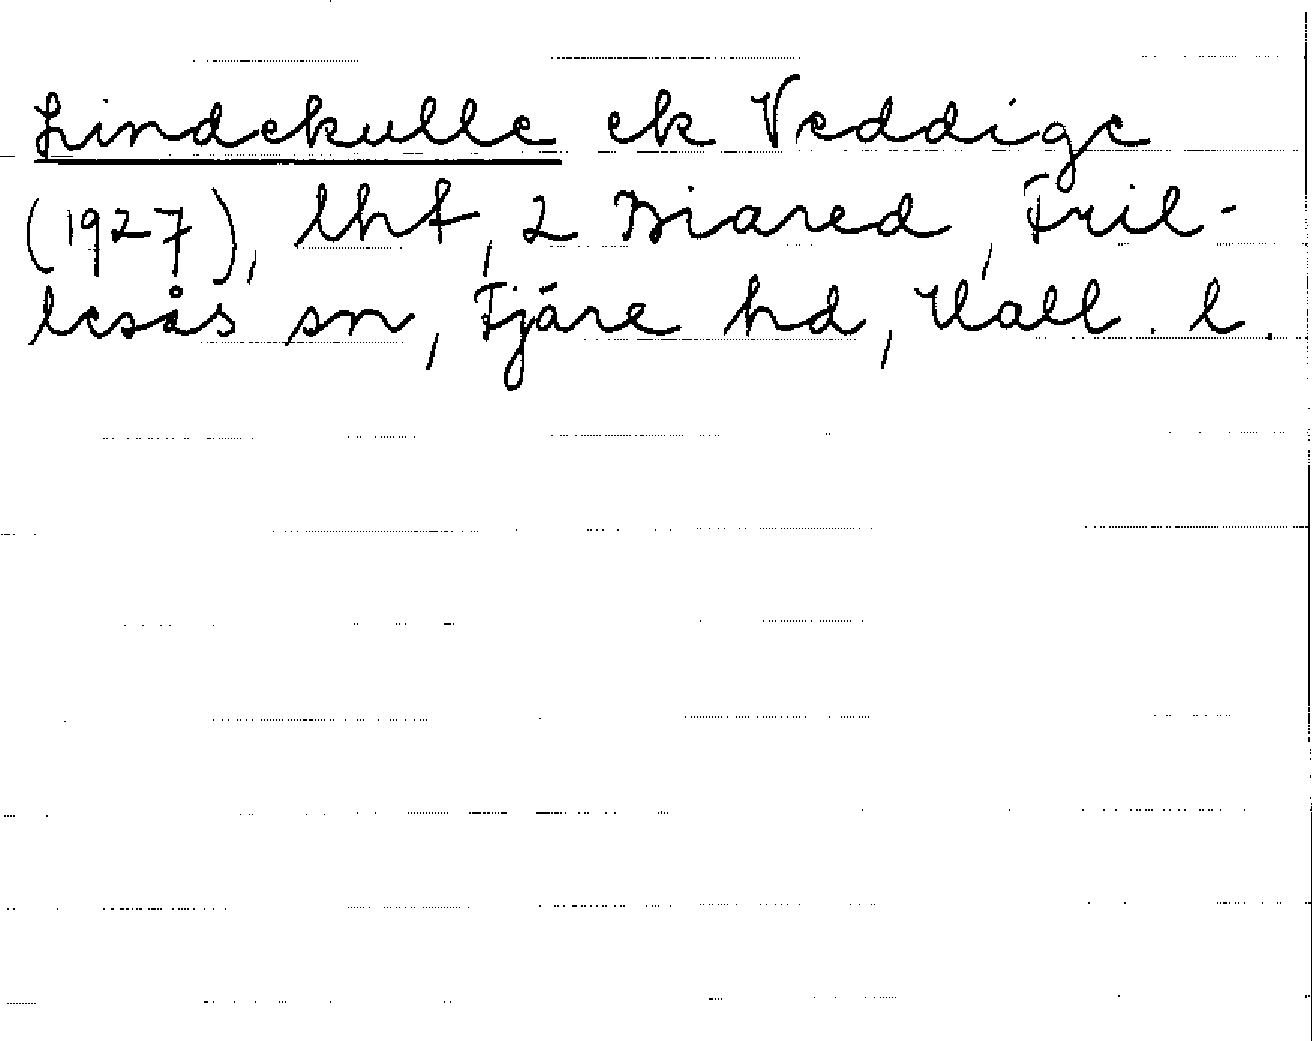 Lindekulle ek Veddige
(1927), lht, 2 Biared, Fril-
lesås sn, Fjäre hd, Hall. l.